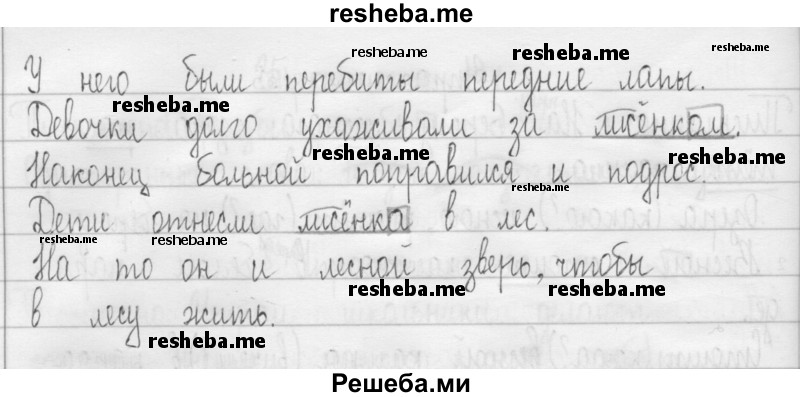 resheba.me
У него были перебиты передние лапы.
Девочки долго ухаживали за лисёнком.
Наконец больной поправился и подрос.
Дети отнесли лисёнка в лес.
На то он и лесной зверь, чтобы
в лесу жить.
resheba.me
resheba.me
resheba.me
resheba.me
resheba.me
resheba.me
resheba.me
resheba.me
resheba.me
resheba.me
resheba.me
resheba.me
Решеба.ми